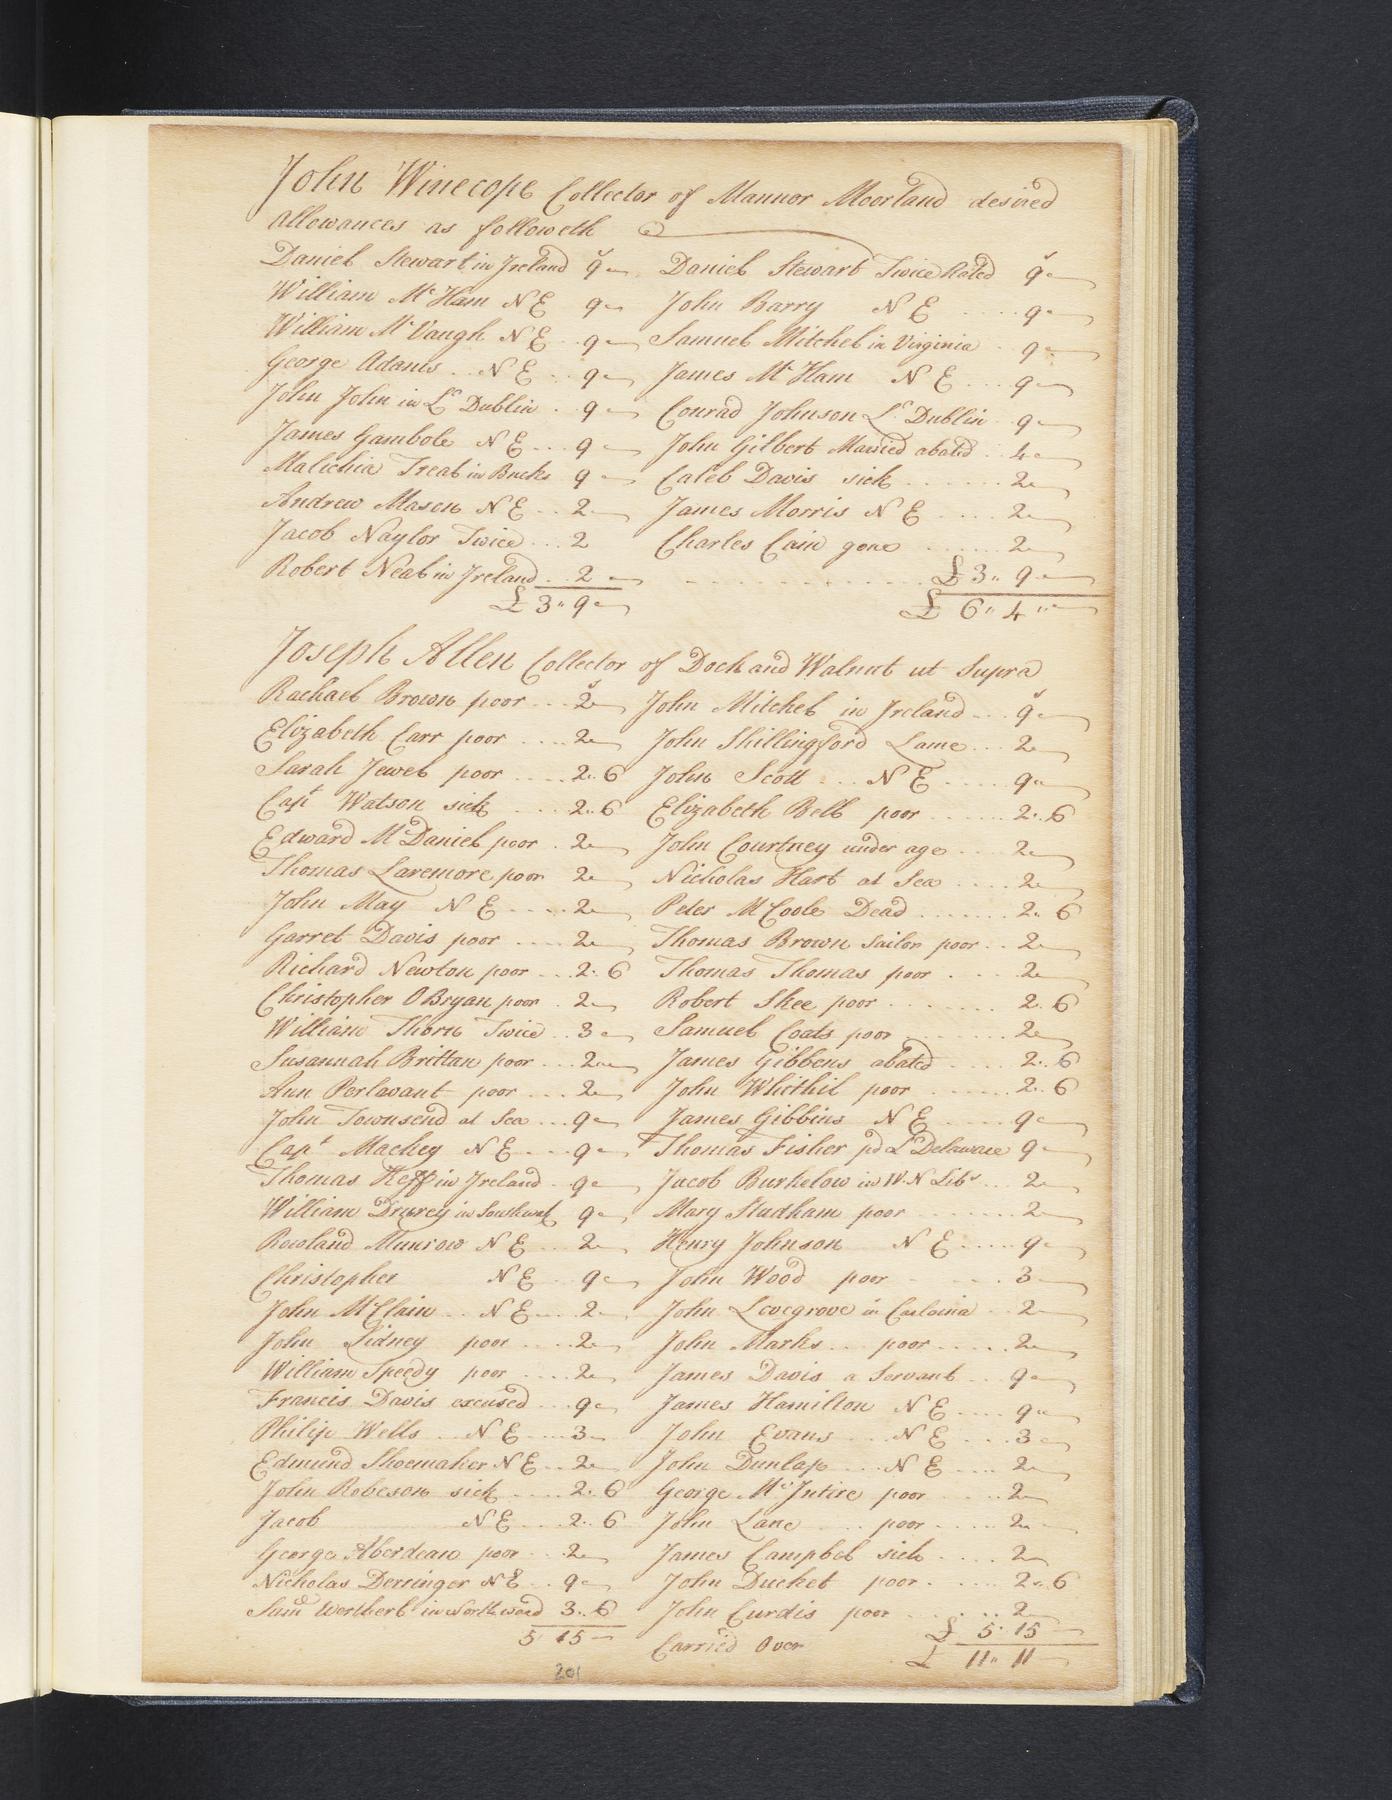 John Winecope Collector of Mannor Moorland desired
allowances as followeth
Daniel Stewart in Ireland 9 Daniel Stewart Twice Rated 9
William Mc Ham N E 9 John Barry N E 9
William Mc Vaugh N E 9 Samuel Mitchel in Virginia 9
George Adams N E 9 James Mc Ham N E 9
John John in Lr Dublin 9 Conrad Johnson Lr Dublin 9
James Gambole N E 9 John Gilbert Married abated 4
Malichia Treat in Bucks 9 Caleb Davis sick 2
Andrew Mason N E 2 James Morris N E 2
Jacob Naylor Twice 2 Charles Cain gone 2
Robert Neal in Ireland 2 £ 3 " 9
£ 3 " 9 £ 6 " 4 "
Joseph Allen Collector of Dock and Walnut ut Supra
Rachael Brown poor 2 John Mitchel in Ireland 9
Elizabeth Carr poor 2 John Shillingsford Lame 2
Sarah Jewel poor 2 .. 6 John Scott N E 9
Capt Watson sick 2 .. 6 Elizabeth Bell poor 2 .. 6
Edward McDaniel poor 2 John Courtney under age 2
Thomas Laremore poor 2 Nicholas Hart at Sea 2
John May N E 2 Peter McCoole Dead 2 .. 6
Garret Davis poor 2 Thomas Brown Sailor poor 2
Richard Newton poor 2 .. 6 Thomas Thomas poor 2
Christopher OBryan poor 2 Robert Skee poor 2 .. 6
William Thorn Twice 3 Samuel Coats poor 2
Susannah Brittan poor 2 James Gibbens abated 2 .. 6
Ann Perlavant poor 2 John Whithil poor 2 .. 6
John Townsend at Sea 9 James Gibbins N E 9
Capt Mackey N E 9 Thomas Fisher pd Lr Delaware 9
Thomas Heff in Ireland 9 Jacob Burkelow in W. N Libs 2
William Drurey in Southwak 9 Mary Studham poor 2
Rowland Munrow N E 2 Henry Johnson N E 9
Christopher N E 9 John Wood poor 3
John McClain N E 2 John Lovegrove in Carloina 2
John Sidney poor 2 John Marks poor 2
William Speedy poor 2 James Davis a Servant 9
Francis Davis excused 9 James Hamilton N E 9
Philip Wells N E 3 John Evans N E 3
Edmund Shoemaker N E 2 John Dunlap N E 2
John Robeson sick 2 .. 6 George McIntire poor 2
Jacob N E 2 .. 6 John Lane poor 2
George Aberdean poor 2 James Campbel sick 2
Nicholas Derringer N E 9 John Ducket poor 2 .. 6
Saml in Northward 3 .. 6 John Curdis poor 2
5 15 Carried Over £ 5 " 15
£ 11 " 11
201